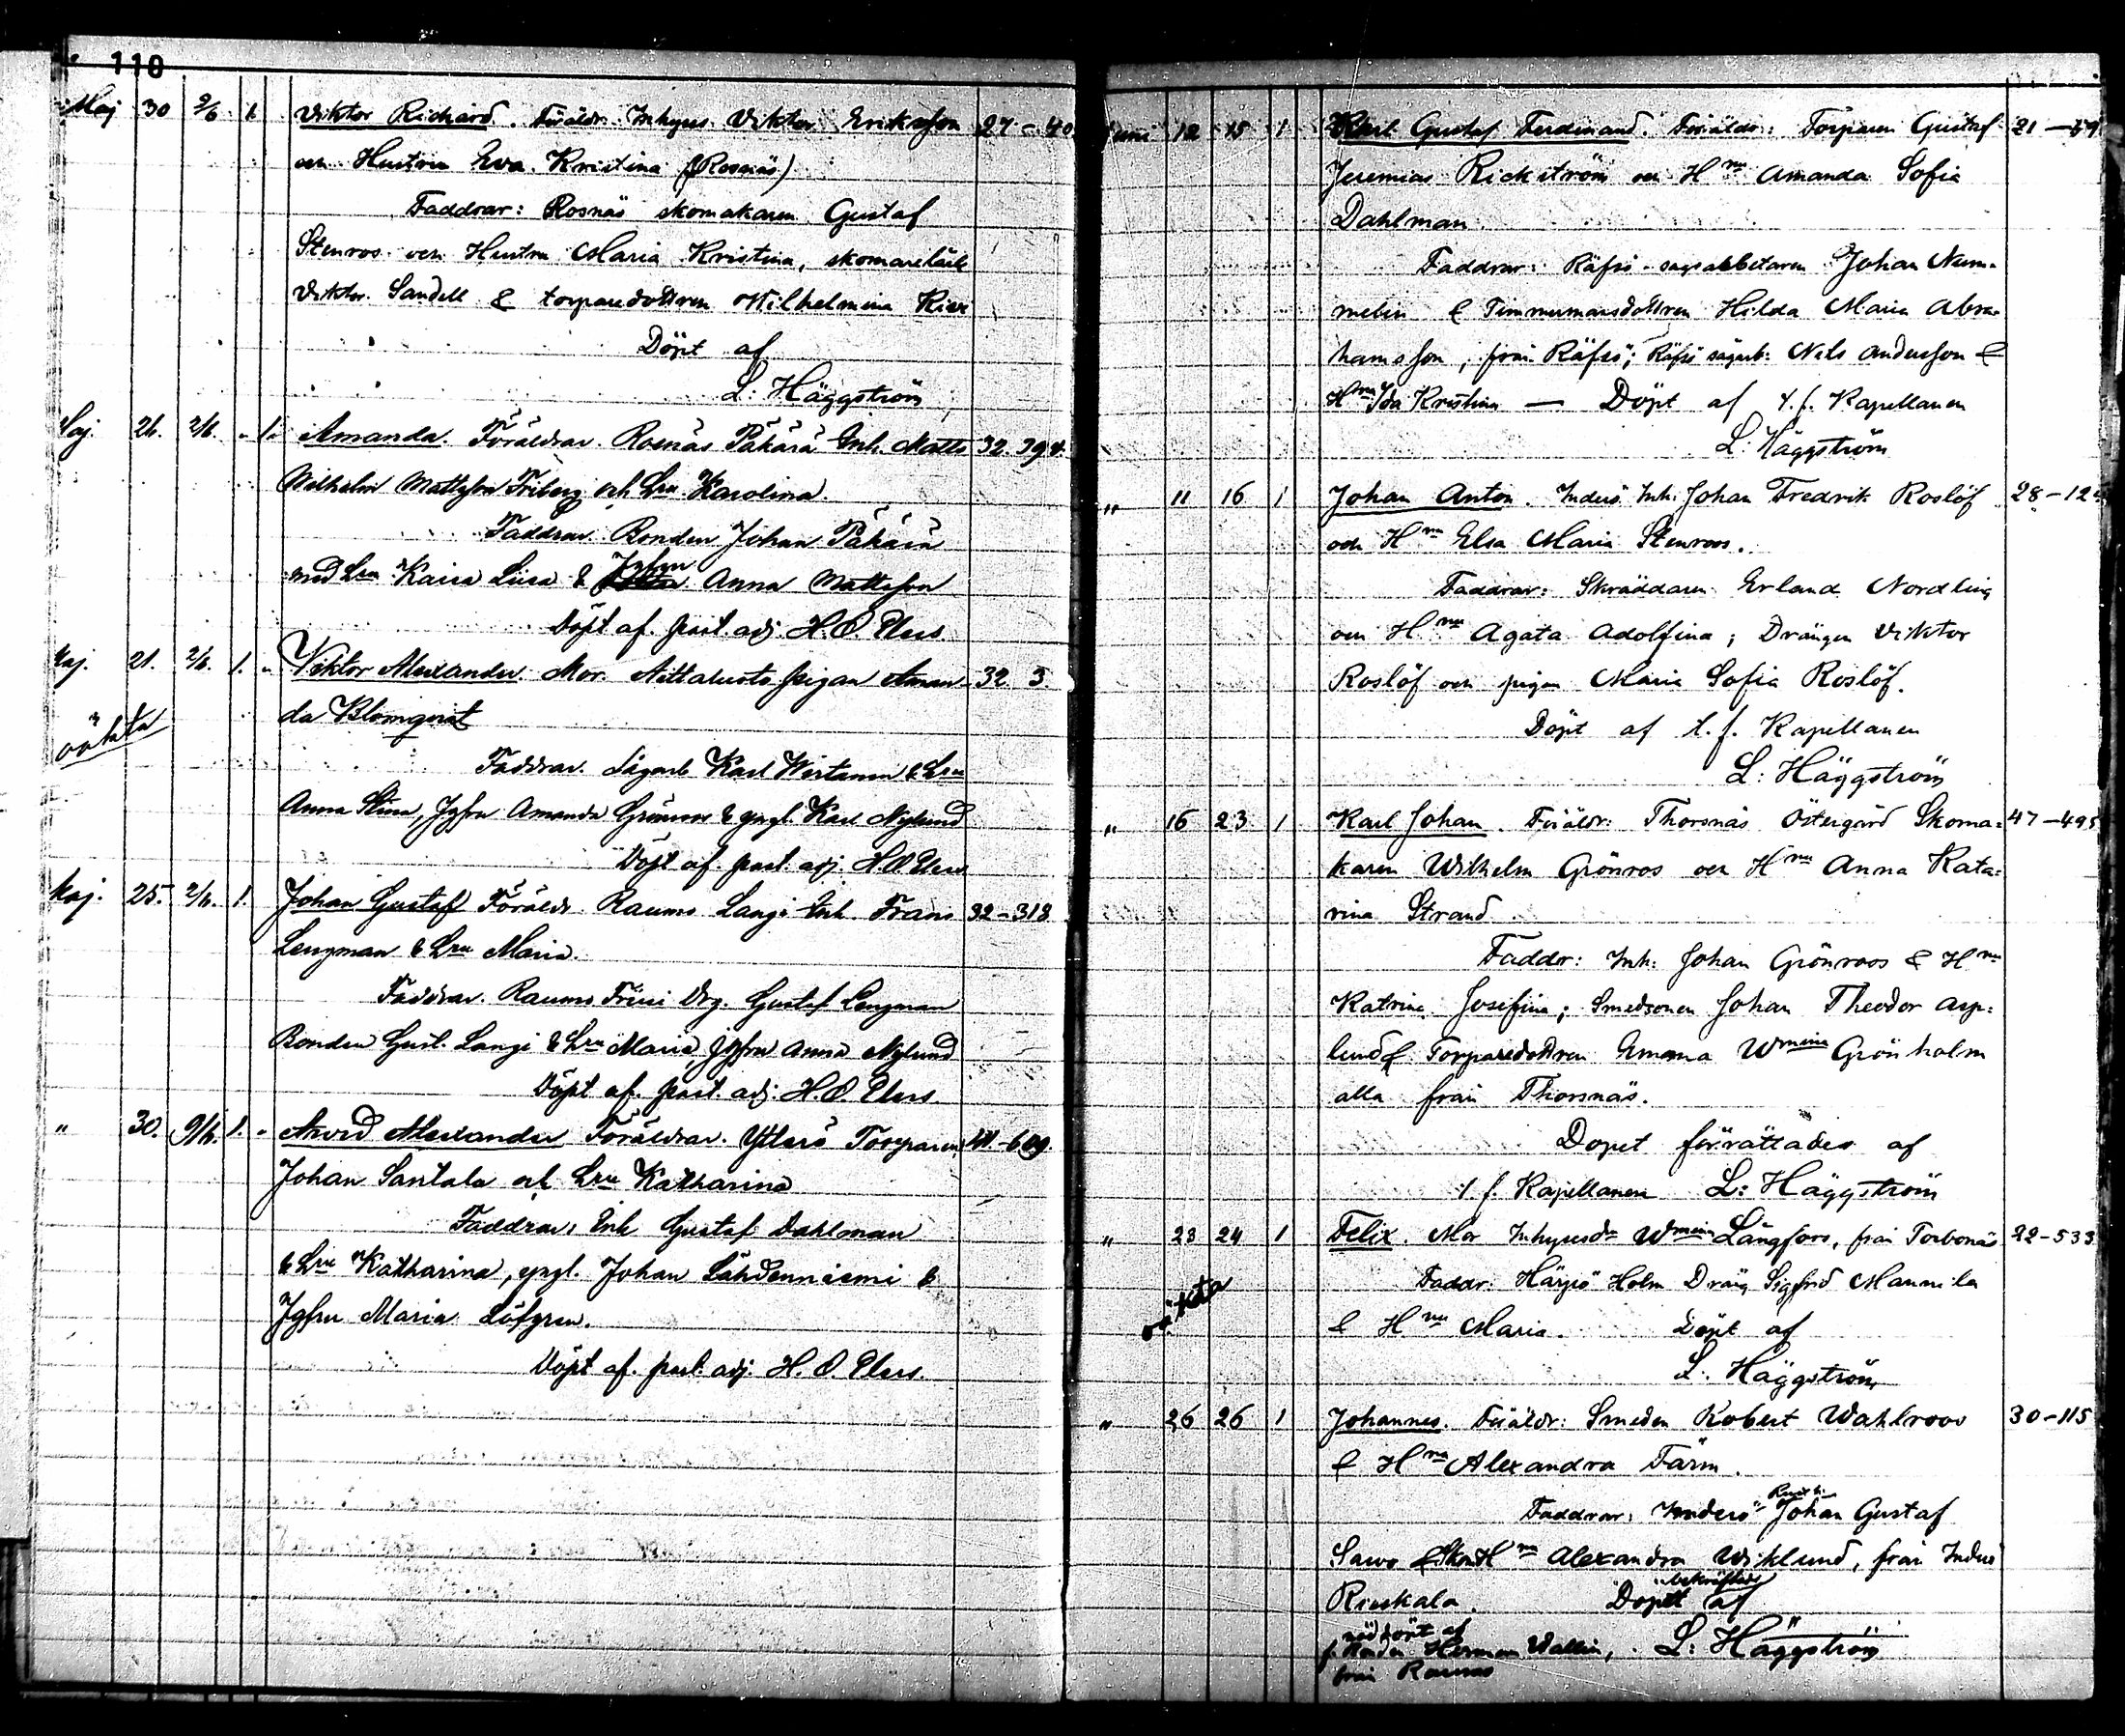 110
Maj 30 2/6 1 Viktor Richard. Föräldr. Inhyses Viktor Eriksson 27-40
och Hustru Eva Kristina (Rosnäs)
Faddrar: Rosnäs skomakaren Gustaf
Stenros och Hustru Maria Kristina,
Viktor Sandell & torparedottren Wilhelmina
Döpt af
L: Häggström
Maj. 26. 2/6. 1. Amanda. Föräldrar. Rosnäs Päkärä Inh. Matts 32. 394.
Wilhelm Mattsson Friberg och Hru Karolina.
Faddrar Bonden Johan Päkärä
med Hru Kaisa Liisa & Jgfru Anna Mattsson
Döpt af. past. adj. H. O. Elers.
Maj. 21. 2/6. 1. Viktor Alexander. Mor. Aittaluoto pigan Aman- 32. 3.
da Blomqvist
oäkta
Faddrar. Sågarb Karl Wirtanen & Hru
Anna Stina, Jgfru Amanda Grönroos & yngl. Karl Nylund
Döpt af. past. adj. H O Elers
Maj. 25. 2/6. 1. Johan Gustaf Föräldr. Raumo Langi Inh. Frans 32-318
Lengman & Hru Maria.
Faddrar. Raumo Friiri Drg. Gustaf Lengman
Bonden Gust. Langi & Hru Maria Jgfru Anna Nylund
Döpt af. past. adj. H. O. Elers.
" 30. 9/6. 1. Arvid Alexander Föräldrar. Ytterö Torparen
Johan Santala och Hru Katharina
Faddrar: Inh Gustaf Dahlman
& Hru Katharina, yngl. Johan Lähdenniemi &
Jgfru Maria Löfgren.
Döpt af. past. adj. H. O. Elers.
Juni 12 15 1 Karl Gustaf Ferdinand. Föräldr: Torparen Gustaf 21-
Jeremias Rickström och Hru Amanda Sofia
Dahlman
Faddrar: Räfsö sågarbetaren Johan Num-
melin & Timmermansdottren Hilda Maria Abra-
hamsson, från Räfsö; Räfsö sågarb: Nils Andersson &
Hru Ida Kristina — Döpt af t. f. Kapellanen
L: Häggström
" 11 16 1 Johan Anton. Inderö Inh: Johan Fredrik Roslöf 28-124
och Hru Elsa Maria Stenroos.
Faddrar: Skräddaren Erland Nordling
och Hru Agata Adolfina; Drängen Viktor
Roslöf och pigan Maria Sofia Roslöf.
Döpt af t. f. Kapellanen
L: Häggström
" 16 23 1 Karl Johan. Föräldr: Thorsnäs Östergård Skoma= 47-495
karen Wilhelm Grönros och Hru Anna Kata=
rina Strand
Faddr: Inh: Johan Grönroos & Hru
Katrina Josefina; Smedsonen Johan Theodor Asp=
lund & Torparedottren Emma Wmina Grönholm
alla från Thorsnäs.
Dopet förrättades af
t f. Kapellanen L: Häggström
" 23 24 1 Felix. Mor Inhysesdr Wmina Långfors, från Torbonäs 22-533
Faddr. Härpö Holm Dräng Sigfrid Mannila
oäkta
& Hru Maria. Döpt af
L. Häggström
" 26 26 1 Johannes. Föräldr: Smeden Robert Wahlroos 30-115
& Hru Alexandra Färm.
Faddrar: Inderö Johan Gustaf
Sawo & Hru Alexandra Wiklund, från Inderö
bekräftadt
Rieskala. Dopet af
nöddöpt af
Herman Wallin, L: Häggström
från Raumo